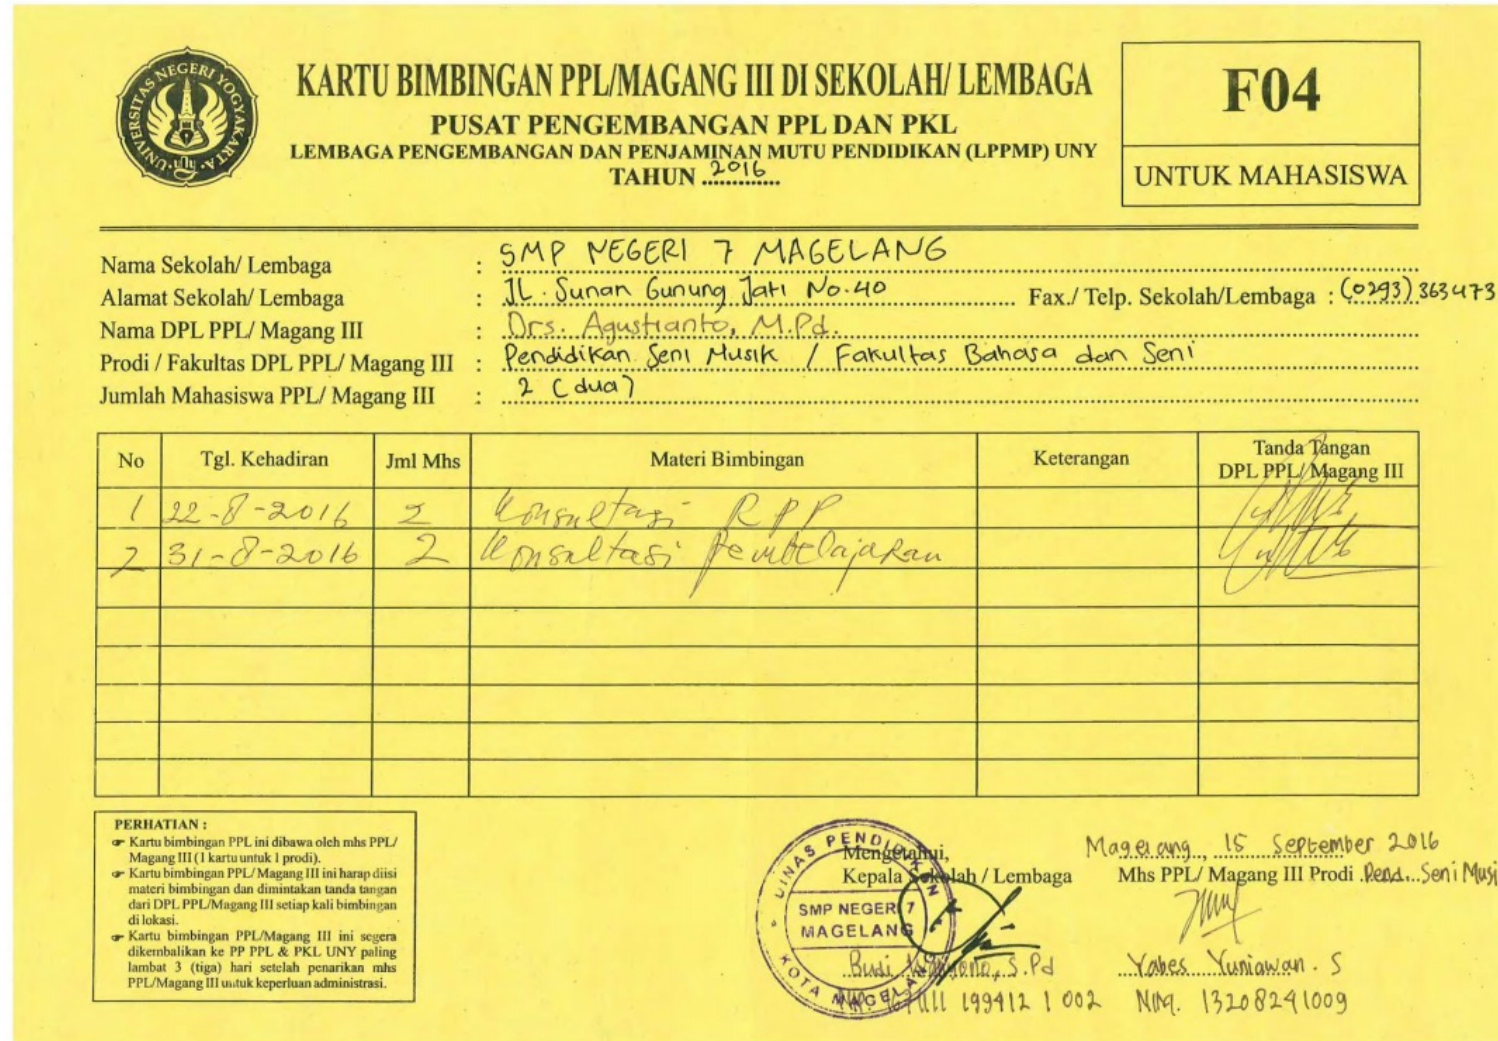 UNIVERSITAS NEGERI YOGYAKARTA
UNY
KARTU BIMBINGAN PPL/MAGANG III DI SEKOLAH/ LEMBAGA
PUSAT PENGEMBANGAN PPL DAN PKL
LEMBAGA PENGEMBANGAN DAN PENJAMINAN MUTU PENDIDIKAN (LPPMP) UNY
TAHUN 2016
F04
UNTUK MAHASISWA
Nama Sekolah/ Lembaga : SMP NEGERI 7 MAGELANG
Alamat Sekolah/ Lembaga : JL. Sunan Gunung Jati No.40 Fax./ Telp. Sekolah/Lembaga : (0293) 363473
Nama DPL PPL/ Magang III : Drs. Agustianto, M.Pd.
Prodi / Fakultas DPL PPL/ Magang III : Pendidikan Seni Musik / Fakultas Bahasa dan Seni
Jumlah Mahasiswa PPL/ Magang III : 2 (dua)
No Tgl. Kehadiran Jml Mhs Materi Bimbingan Keterangan Tanda Tangan DPL PPL/ Magang III
1 22-8-2016 2 Konsultasi RPP
2 31-8-2016 2 Konsultasi Pembelajaran
PERHATIAN :
☞ Kartu bimbingan PPL ini dibawa oleh mhs PPL/
Magang III (1 kartu untuk 1 prodi).
☞ Kartu bimbingan PPL/ Magang III ini harap diisi
materi bimbingan dan dimintakan tanda tangan
dari DPL PPL/Magang III setiap kali bimbingan
di lokasi.
☞ Kartu bimbingan PPL/Magang III ini segera
dikembalikan ke PP PPL & PKL UNY paling
lambat 3 (tiga) hari setelah penarikan mhs
PPL/Magang III untuk keperluan administrasi.
Mengetahui,
Kepala Sekolah / Lembaga
DINAS PENDIDIKAN
SMP NEGERI 7
MAGELANG
KOTA MAGELANG
Budi S.Pd
199412 1 002
Magelang, 15 September 2016
Mhs PPL/ Magang III Prodi Pend. Seni Musi
Yabes Yuniawan . S
NIM. 13208241009